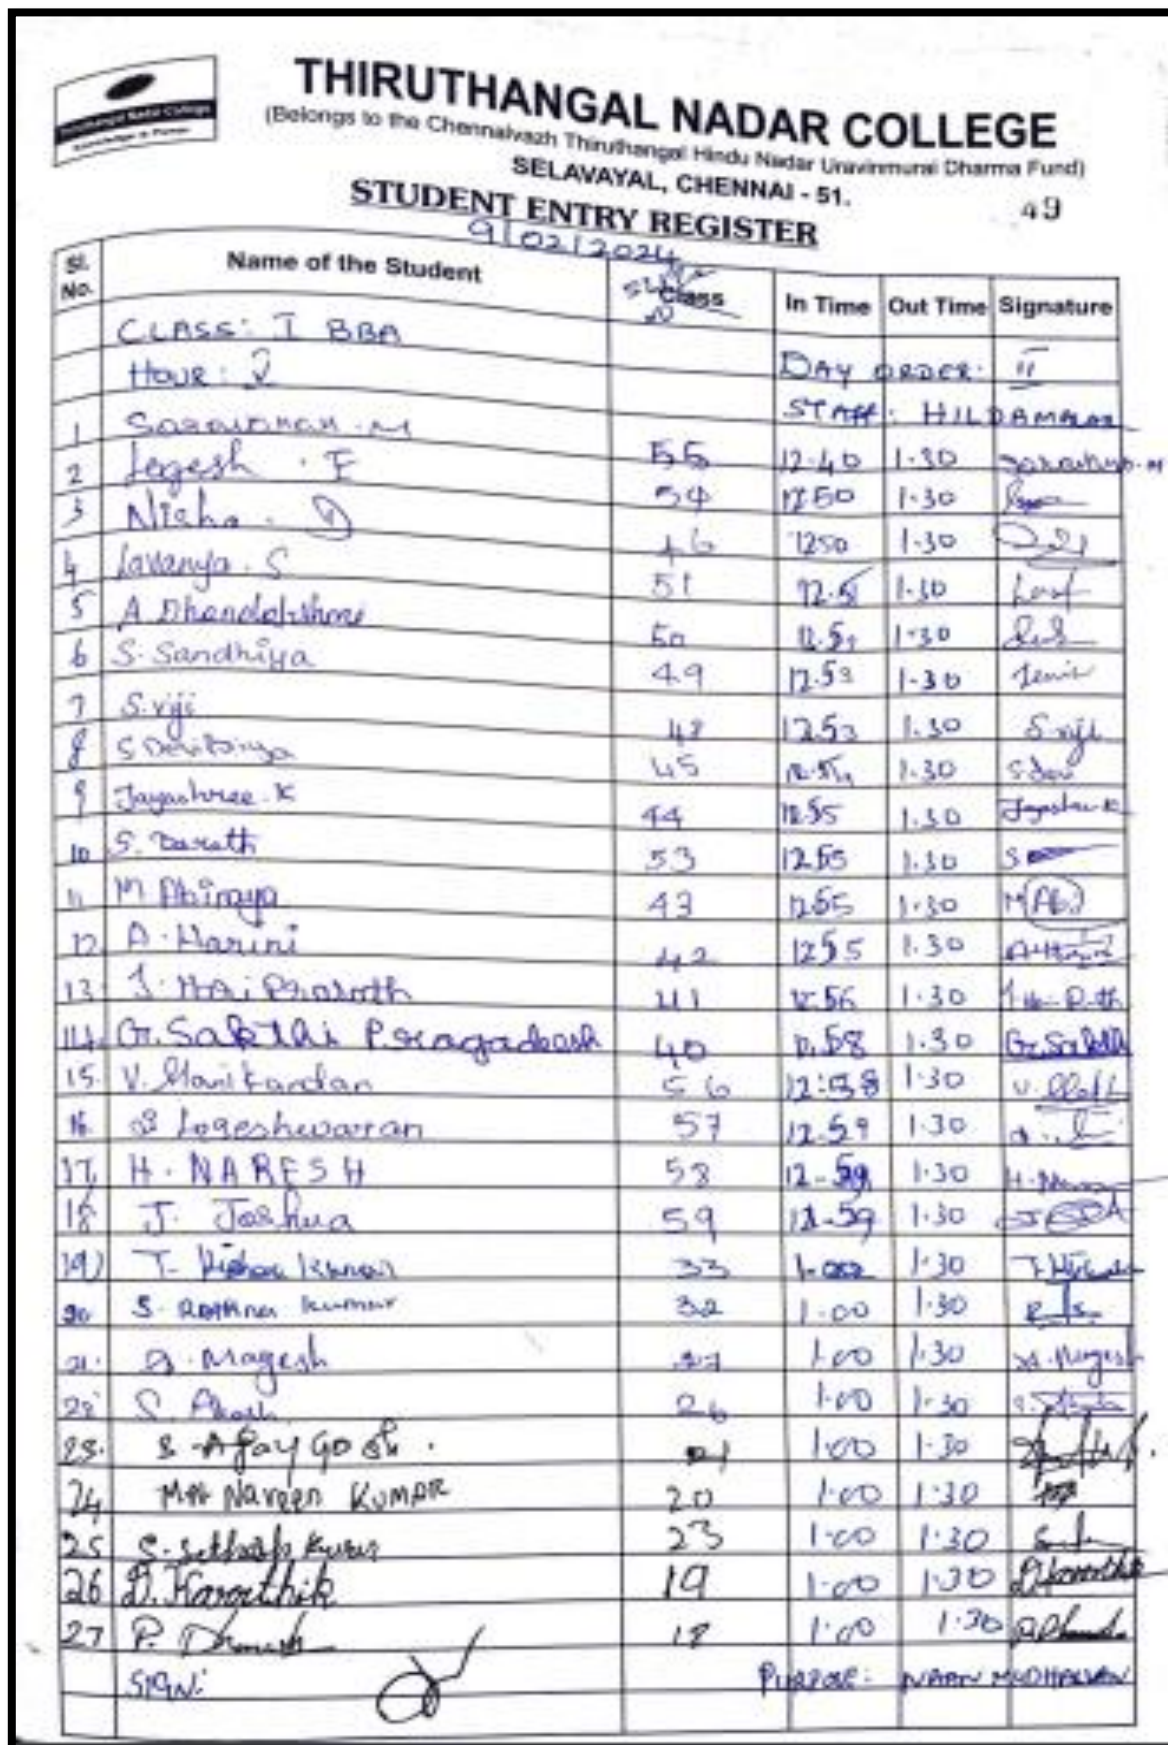 Thiruthangal Nadar College
THIRUTHANGAL NADAR COLLEGE
(Belongs to the Chennaivazh Thiruthangal Hindu Nadar Uravinmurai Dharma Fund)
SELAVAYAL, CHENNAI - 51.
STUDENT ENTRY REGISTER 49
9/02/2024
Sl. No. Name of the Student Class In Time Out Time Signature
CLASS: I BBA
HOUR: 2 DAY ORDER: II
STAFF: HILDAMALAR
1 Saravanan.M 55 12.40 1.30
2 Logesh . E 54 12.50 1.30
3 Nisha . D 46 1250 1.30
4 Lavanya. S 51 1.30
5 A. Dhanalakshmi 50 1.30
6 S. Sandhiya 49 12.53 1.30
7 S.viji 48 12.53 1.30 S.viji
8 45 12.54 1.30 S.Dev
9 Jayashree.K 44 12.55 1.30
10 S. 53 12.55 1.30 S
11 M Abinaya 43 12.55 1.30 M Abi
12 A. Harini 42 12.55 1.30
13 41 12.56 1.30
14. G.Sakthi Pragadeesh 40 12.58 1.30 G.Sakthi
15. V. Manikandan 56 12:58 1.30
16. Logeshwaran 57 12.59 1.30
17. H. NARESH 58 12-59 1.30
18 J. Joshua 59 12-59 1.30
19) T. Kishor Kumar 33 1.30
20 S. Kumar 32 1.00 1.30
21. Magesh 27 1.00 1.30
22 S. Akash 26 1.00 1.30
23. S. Ajay Gosh. 1.00 1.30
24 Naveen KUMAR 20 1.00 1.30
25 S. Kumar 23 1.00 1.30
26 D. Karthik 19 1.00 1.30 D.Karthik
27 P. 18 1.00 1.30
SIGN: PURPOSE: NAAN MUDHALVAN